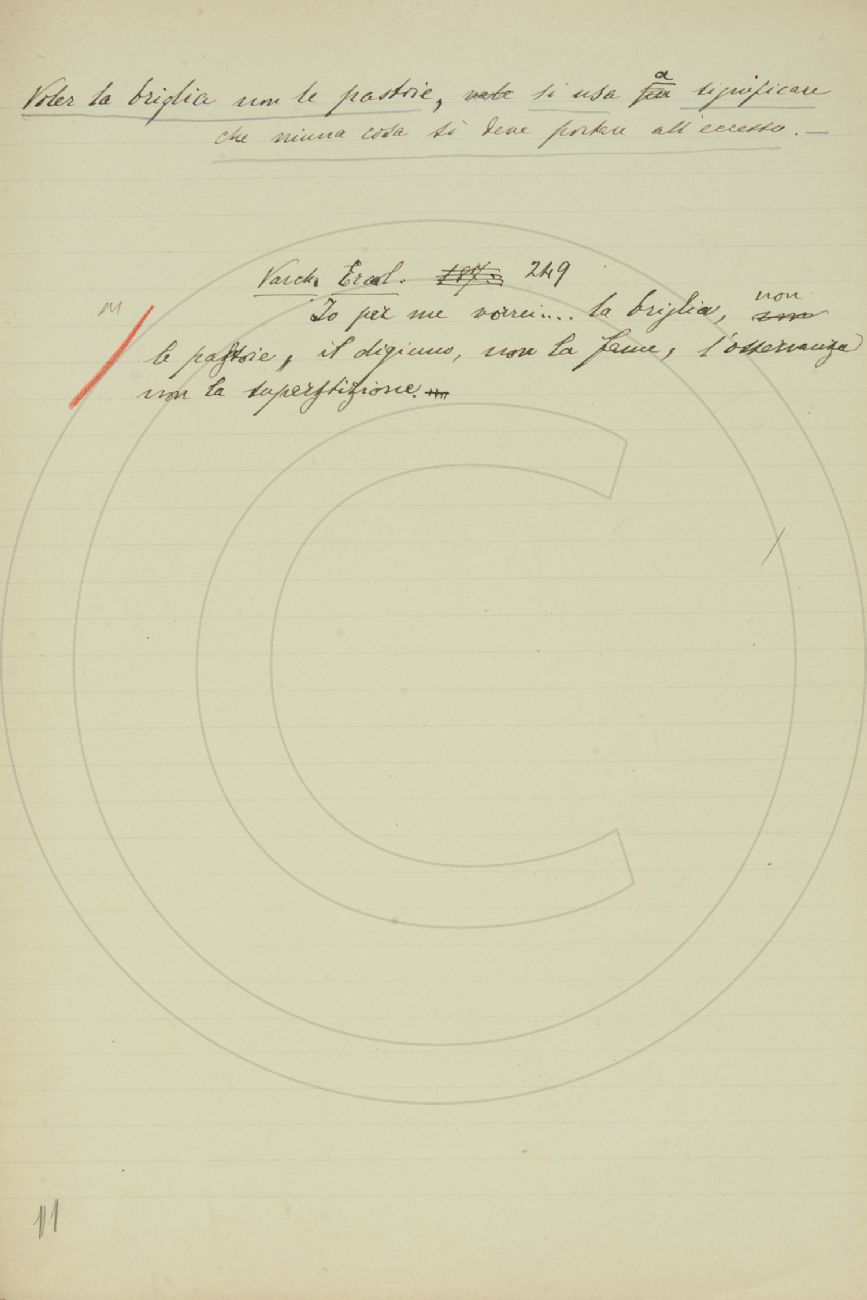 Voler la briglia non le pastoie, vale si usa per a significare
che niuna cosa si deve portare all'eccesso. —
Varch. Ercol. 187. 249
Io per me vorrei.... la briglia, non
le pastoie, il digiuno, non la fame, l'osservanza
non la superstizione.
M
11